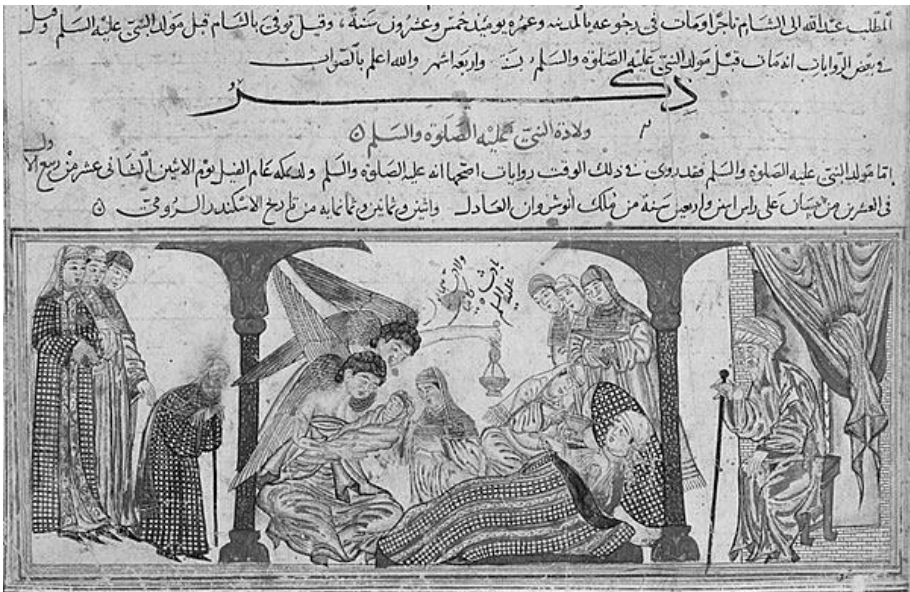 المطلب عبد الله الى الشام تاجرا ومات فى رجوعه بالمدينه وعمره يوميذ خمس وعشرون سنة، وقيل توفى بالشام قبل مولد النبى عليه السلم وقيل
فى بعض الروايات انه مات قبل مولد النبى عليه الصلوة والسلم بسنة واربعة اشهر والله اعلم بالصواب
ذكر
ولادة النبى عليه الصلوة والسلم
اما مولد النبى عليه الصلوة والسلم فقد روى فى ذلك الوقت روايات اصحها انه عليه الصلوة والسلم ولد بمكه عام الفيل يوم الاثنين الثانى عشر من ربيع الاول
فى العشرين من نيسان على راس اثنين واربعين سنة من ملك انوشروان العادل واثنين وثمانين وثمانمايه من تاريخ الاسكندر الرومى